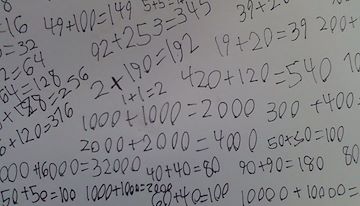 =16 49+100=149 5+5=
=32 92+253=345 39+2
2=64 2×190=192 19+20=39 200+
64=128 1+1=2 420+120=540
+128=256 1000+1000=2000 300+400
+120=376 2000+2000=4000 50+50=100
000+16000=32000 40+40=80 90+90=180 80
50+50=100 1000+1000=2000 60+40=100 10000+10000=